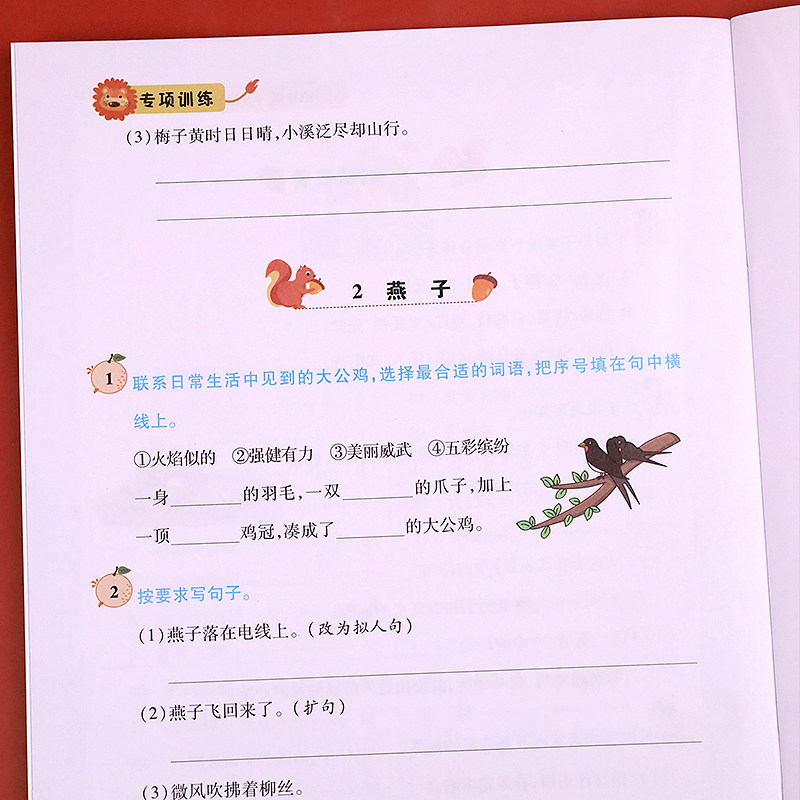 专项训练
(3)梅子黄时日日晴,小溪泛尽却山行。
2 燕子
1 联系日常生活中见到的大公鸡,选择最合适的词语,把序号填在句中横
线上。
①火焰似的 ②强健有力 ③美丽威武 ④五彩缤纷
一身________的羽毛,一双________的爪子,加上
一顶________鸡冠,凑成了________的大公鸡。
2 按要求写句子。
(1)燕子落在电线上。(改为拟人句)
(2)燕子飞回来了。(扩句)
(3)微风吹拂着柳丝。